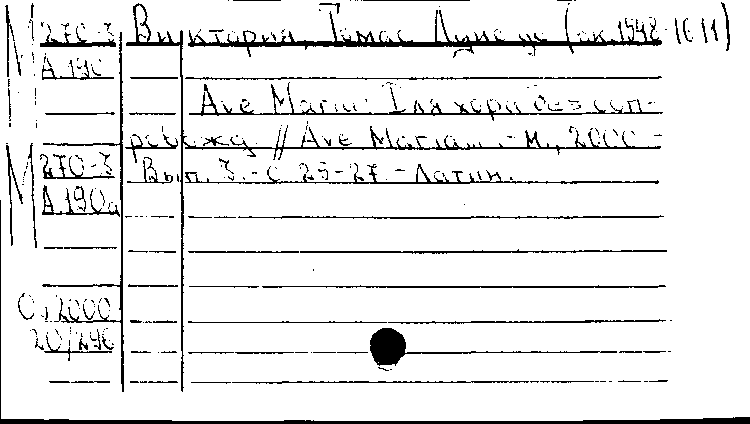 М 270-3 Виктория, Томас Луис де (ок. 1548-1611)
А.190
Ave Maria: Для хора без соп-
ровожд // Ave Maria... - М., 2000 -
М 270-3 Вып. 3. - С 25-27. - Латин.
А.190а
0,2000
20/296